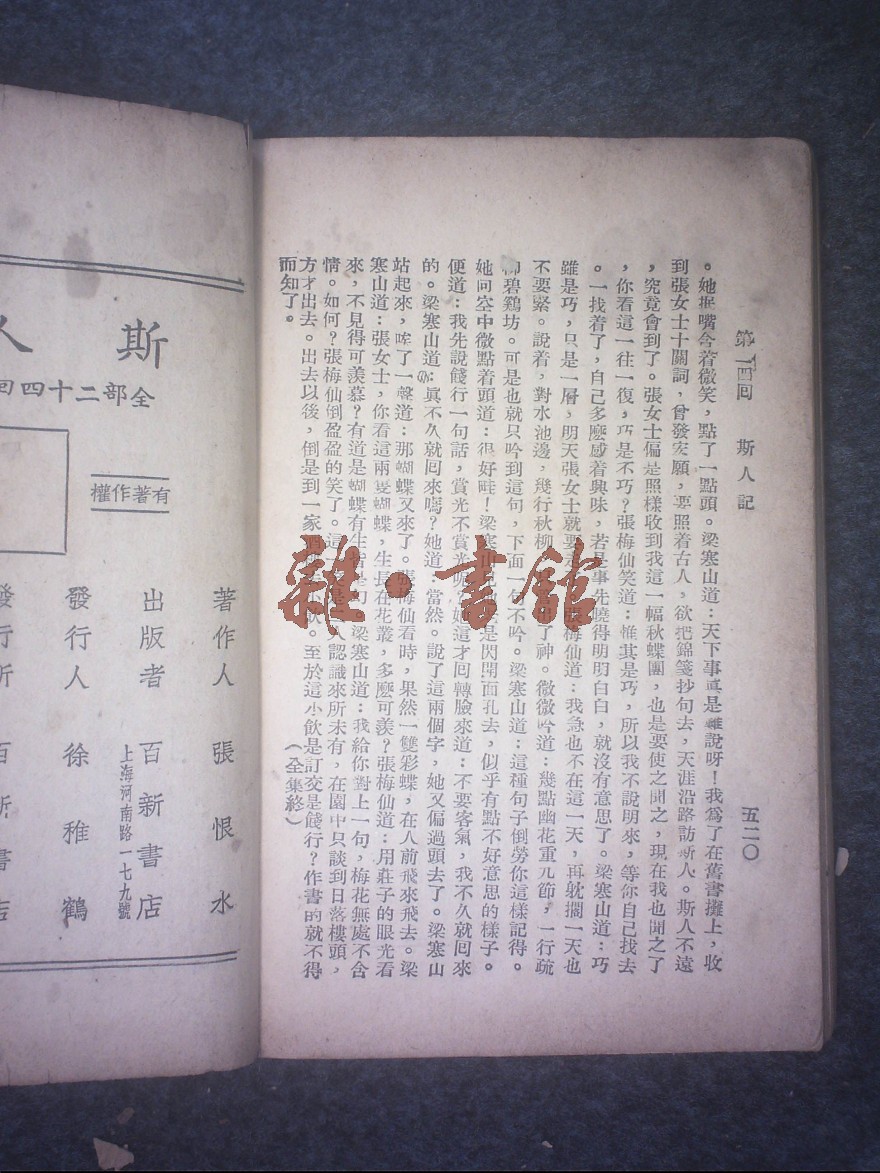 第 四回　斯人記　五二〇
。她抿嘴含着微笑，點了一點頭。梁寒山道：天下事真是難說呀！我爲了在舊書攤上，收
到張女士十闋詞，曾發宏願，要照着古人，欲把錦箋抄句去，天涯沿路訪斯人。斯人不遠
，究竟會到了。張女士偏是照樣收到我這一幅秋蝶團，也是要使之聞之，現在我也聞之了
，你看這一往一復，巧是不巧？張梅仙笑道：惟其是巧，所以我不說明來，等你自己找去
。一找着了，自己多麽感着興味，若是事先曉得明明白白，就沒有意思了。梁寒山道：巧
雖是巧，只是一層，明天張女士就要走 張梅仙道：我急也不在這一天，再躭擱一天也
不要緊。說着，對水池邊，幾行秋柳 了神。微微吟道：幾點幽花重九節，一行疏
柳碧鷄坊。可是也就只吟到這句，下面一句不吟。梁寒山道：這種句子倒勞你這樣記得。
她向空中微點着頭道：很好哇！梁寒山 是閃開面孔去，似乎有點不好意思的樣子。
便道：我先說餞行一句話，賞光不賞光呢？她這才回轉臉來道：不要客氣，我不久就回來
的。梁寒山道：眞不久就回來嗎？她道：當然。說了這兩個字，她又偏過頭去了。梁寒山
站起來，咤了一聲道：那蝴蝶又來了。張梅仙看時，果然一雙彩蝶，在人前飛來飛去。梁
寒山道：張女士，你看這兩隻蝴蝶，生長在花叢，多麽可羨？張梅仙道：用莊子的眼光看
來，不見得可羨慕？有道是蝴蝶有生 句 梁寒山道：我給你對上一句，梅花無處不含
情。如何？張梅仙倒盈盈的笑了。這一 人認識來所未有，在園中只談到日落樓頭，
方才出去。出去以後，倒是到一家 小飲。至於這小飲是訂交是餞行？作書的就不得
而知了。　（全集終）
雜·書館
斯人
全部二十四回
有著作權
著作人　張恨水
出版者　百新書店
上海河南路一七九號
發行人　徐稚鶴
發行所　百新書店